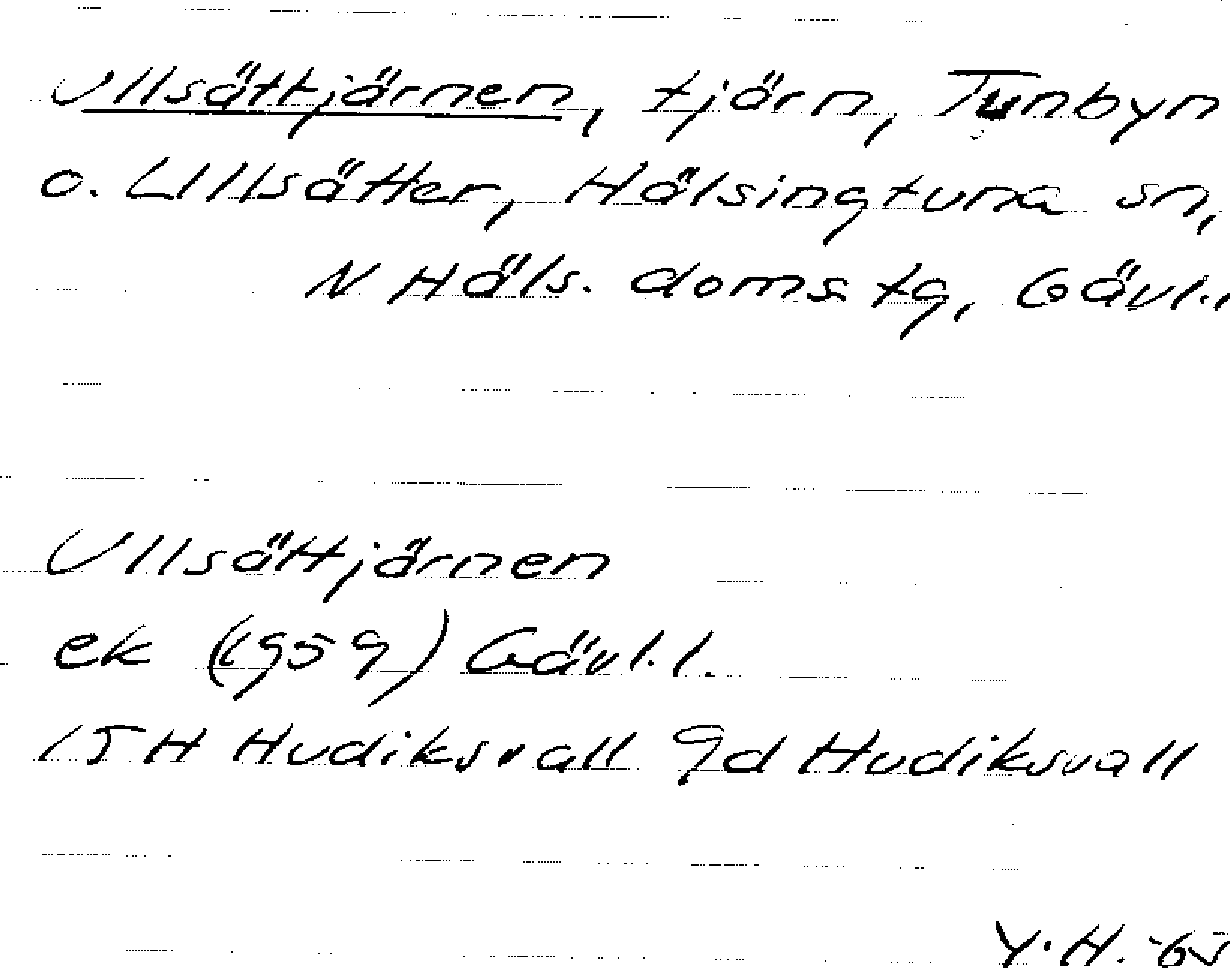 Ullsättjärnen, tjärn, Tunbyn
o. Ullsätter, Hälsingtuna sn,
N Häls. doms. tg, Gävl.l
Ullsättjärnen
ek (1959) Gävl.l.
15H Hudiksvall 9d Hudiksvall
Y.H. -65